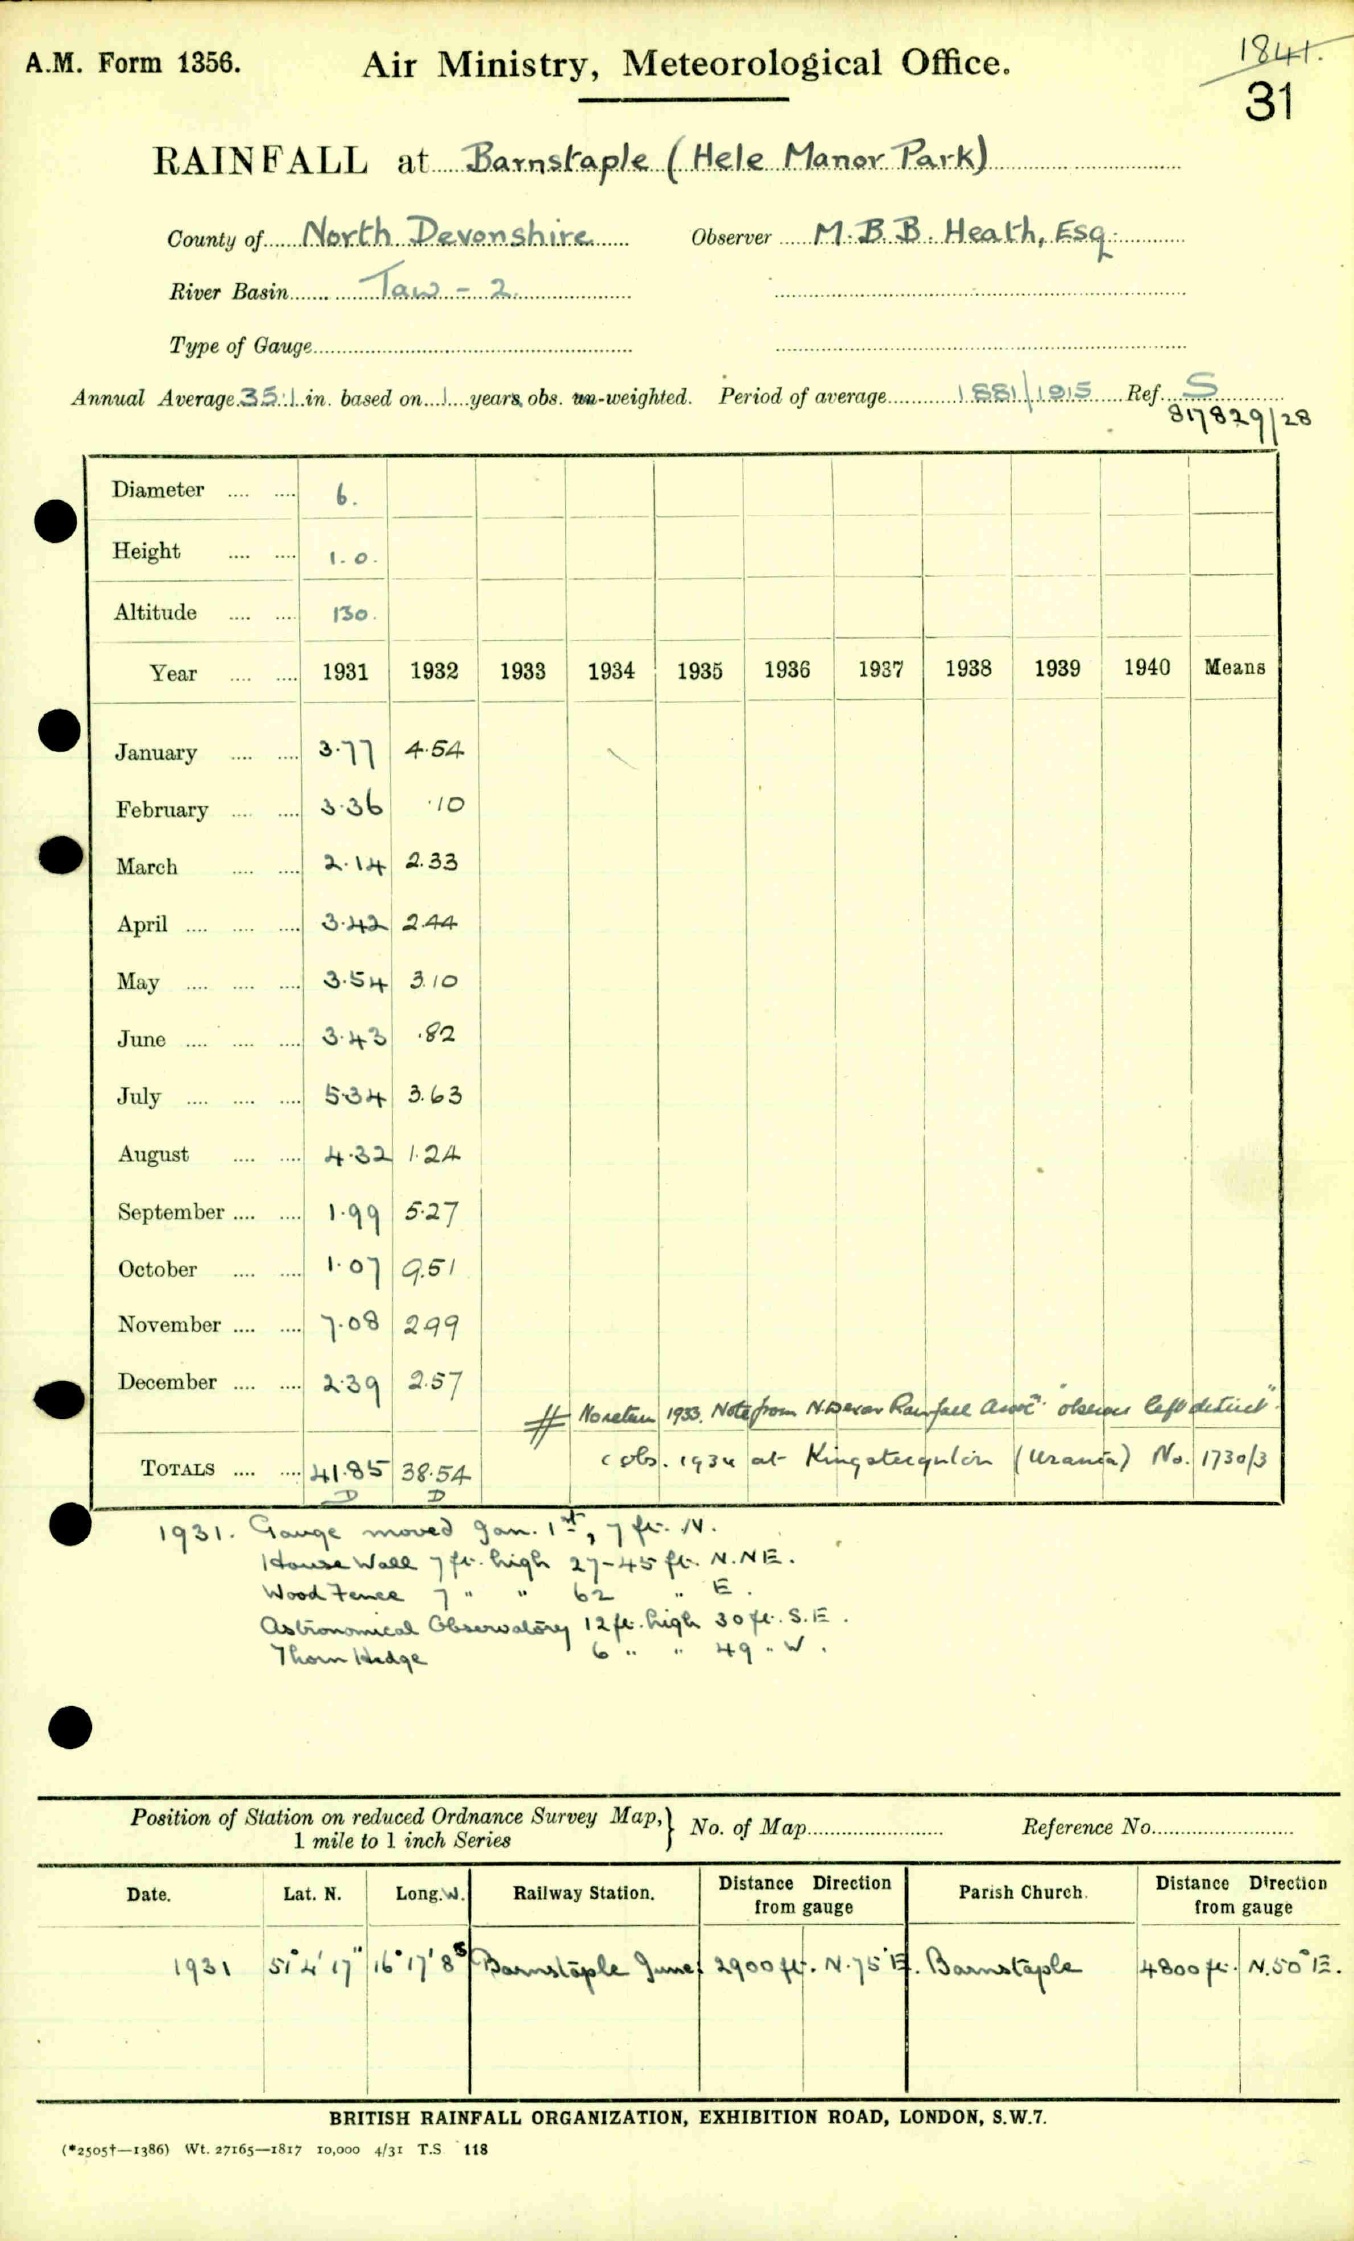 1841.
A.M. Form 1356. Air Ministry, Meteorological Office.
31
RAINFALL at Barnstaple (Hele Manor Park)
County of North Devonshire Observer M.B.B. Heath, Esq.
River Basin Taw - 2.
Type of Gauge
Annual Average 35.1 in. based on 1 years obs. un-weighted. Period of average 1881/1915 Ref. S
817829/28
Diameter 6.
Height 1.0.
Altitude 130.
Year 1931 1932 1933 1934 1935 1936 1937 1938 1939 1940 Means
January 3.77 4.54
February 3.36 .10
March 2.14 2.33
April 3.42 2.44
May 3.54 3.10
June 3.43 .82
July 5.34 3.63
August 4.32 1.24
September 1.99 5.27
October 1.07 9.51
November 7.08 2.99
December 2.39 2.57
No return 1933. Note from N. Devon Rainfall Assoc. "observer left district".
TOTALS 41.85 38.54
obs. 1934 at Kingsteignton (Urania) No. 1730/3
D D
1931. Gauge moved Jan. 1st, 7 ft. N.
House Wall 7 ft. high 27-45 ft. N.NE.
Wood Fence 7 " " 62 " E.
Astronomical Observatory 12 ft. high 30 ft. S.E.
Thorn Hedge 6 " " 49 " W.
Position of Station on reduced Ordnance Survey Map,} No. of Map Reference No.
1 mile to 1 inch Series
Date. Lat. N. Long. W. Railway Station. Distance Direction from gauge Parish Church. Distance Direction from gauge
1931 51° 4' 17" 16° 17' 8s Barnstaple Junc. 2900 ft. N. 75° E. Barnstaple 4800 ft. N. 50° E.
BRITISH RAINFALL ORGANIZATION, EXHIBITION ROAD, LONDON, S.W.7.
(*2505†—1386) Wt. 27165—1817 10,000 4/31 T.S 118